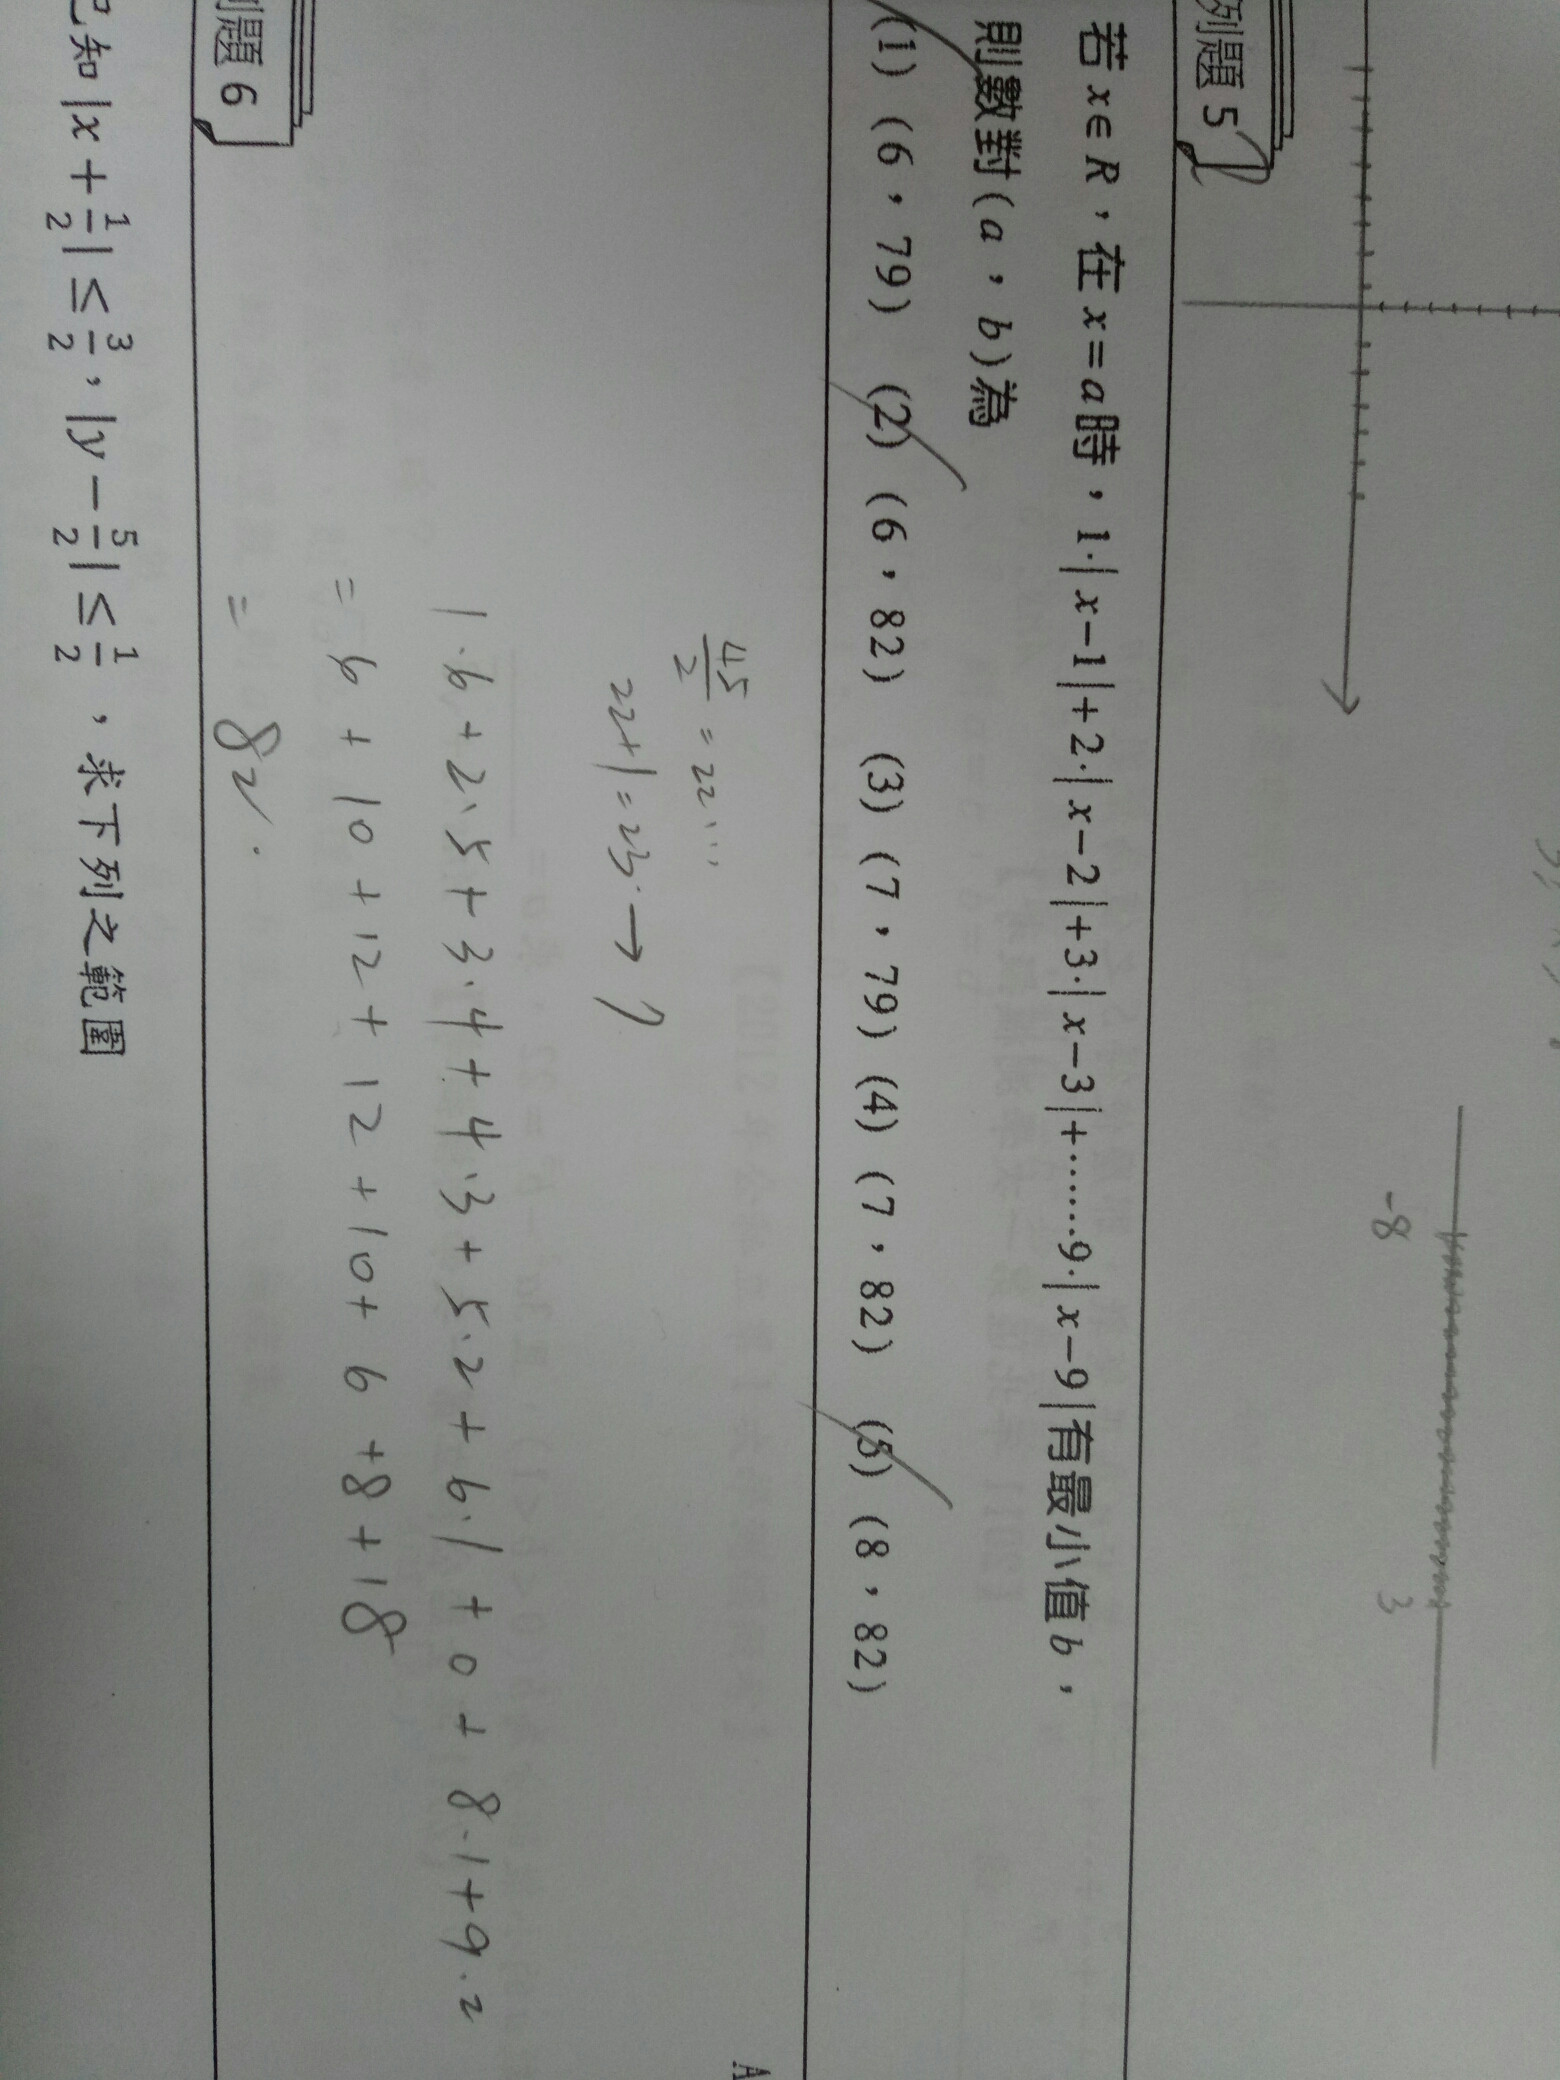 -8 3
例題 5
若 x∈R，在 x=a時，1·|x-1|+2·|x-2|+3·|x-3|+……9·|x-9|有最小值b，
則數對(a，b)為
(1) (6，79) (2) (6，82) (3) (7，79) (4) (7，82) (5) (8，82)
A
45/2 = 22...
22+1=23.→7
1·6+2·5+3·4+4·3+5·2+6·1+0+8·1+9·2
= 6+10+12+12+10+6+8+18
= 82.
例題 6
已知 |x+1/2|≤3/2，|y-5/2|≤1/2，求下列之範圍